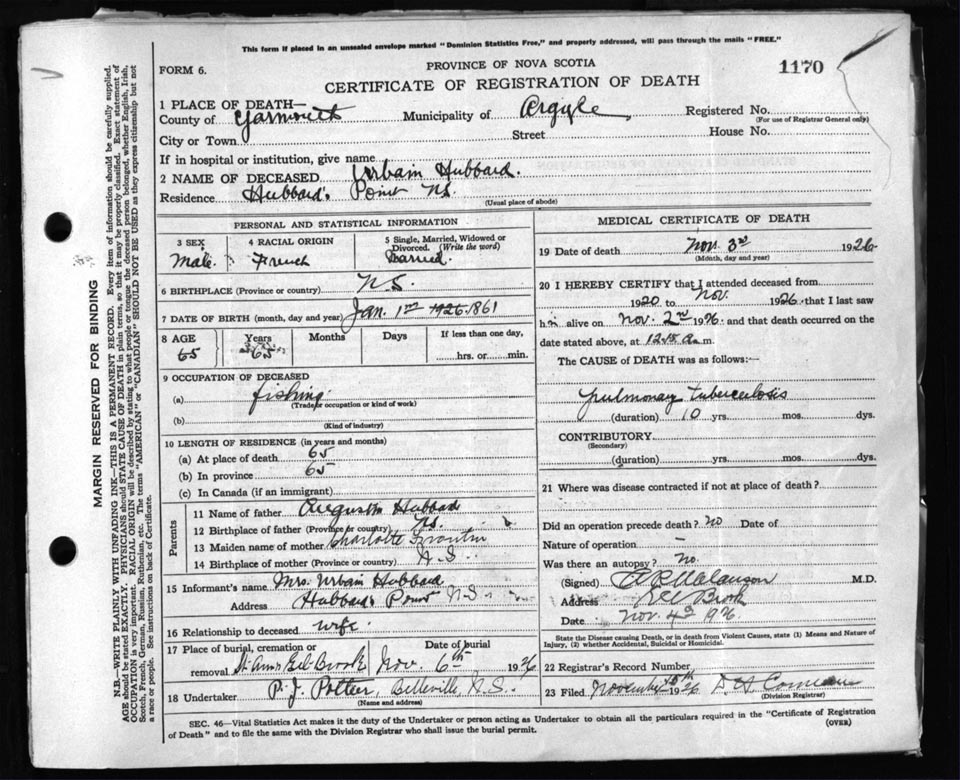 This form if placed in an unsealed envelope marked "Dominion Statistics Free," and properly addressed, will pass through the mails "FREE."
PROVINCE OF NOVA SCOTIA
FORM 6.
1170
CERTIFICATE OF REGISTRATION OF DEATH
1 PLACE OF DEATH—
County of Yarmouth Municipality of Argyle Registered No.
(For use of Registrar General only)
City or Town Street House No.
If in hospital or institution, give name
2 NAME OF DECEASED Urbain Hubbard.
Residence Hubbard's Point NS.
(Usual place of abode)
PERSONAL AND STATISTICAL INFORMATION
3 SEX 4 RACIAL ORIGIN 5 Single, Married, Widowed or Divorced. (Write the word)
Male French Married.
6 BIRTHPLACE (Province or country) N.S.
7 DATE OF BIRTH (month, day and year) Jan. 1st 1861
8 AGE Years Months Days If less than one day,
65 65 hrs. or min.
9 OCCUPATION OF DECEASED
(a) fishing
(Trade or occupation or kind of work)
(b)
(Kind of industry)
10 LENGTH OF RESIDENCE (in years and months)
(a) At place of death 65
(b) In province 65
(c) In Canada (if an immigrant)
Parents
11 Name of father Hubbard
12 Birthplace of father (Province or country) NS.
13 Maiden name of mother Charlotte
14 Birthplace of mother (Province or country) N.S.
15 Informant's name Mrs. Urbain Hubbard
Address Hubbard's Point N.S.
16 Relationship to deceased wife
17 Place of burial, cremation or removal Date of burial
St Anns Eel Brook Nov. 6th 1926
18 Undertaker P. J. Pottier, Belleville, N.S.
(Name and address)
MEDICAL CERTIFICATE OF DEATH
19 Date of death Nov. 3rd 1926
(Month, day and year)
20 I HEREBY CERTIFY that I attended deceased from
1920 to Nov. 1926 that I last saw
him alive on Nov. 2nd 1926 and that death occurred on the
date stated above, at a.m.
The CAUSE of DEATH was as follows:—
pulmonary tuberculosis
(duration) 10 yrs. mos. dys.
CONTRIBUTORY
(Secondary)
(duration) yrs. mos. dys.
21 Where was disease contracted if not at place of death?
Did an operation precede death? no Date of
Nature of operation –
Was there an autopsy? no.
(Signed) Melanson M.D.
Address Eel Brook
Date Nov 4th 1926
State the Disease causing Death, or in death from Violent Causes, state (1) Means and Nature of Injury, (2) whether Accidental, Suicidal or Homicidal.
22 Registrar's Record Number
23 Filed November 1926
(Division Registrar)
SEC. 46—Vital Statistics Act makes it the duty of the Undertaker or person acting as Undertaker to obtain all the particulars required in the "Certificate of Registration
of Death" and to file the same with the Division Registrar who shall issue the burial permit.
(OVER)
MARGIN RESERVED FOR BINDING
N.B.—WRITE PLAINLY WITH UNFADING INK—THIS IS A PERMANENT RECORD. Every item of information should be carefully supplied.
AGE should be stated EXACTLY. PHYSICIANS should STATE CAUSE OF DEATH in plain terms, so that it may be properly classified. Exact statement of
OCCUPATION is very important. RACIAL ORIGIN will be described by stating to what people or tongue the deceased person belonged, whether English, Irish,
Scotch, French, German, Russian, Ruthenian, etc. The terms "AMERICAN" or "CANADIAN" SHOULD NOT BE USED as they express citizenship but not
a race or people. See instructions on back of Certificate.